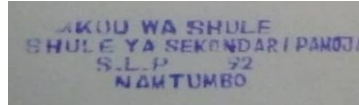 MKUU WA SHULE
SHULE YA SEKONDARI PAMOJA
S.L.P 92
NAMTUMBO